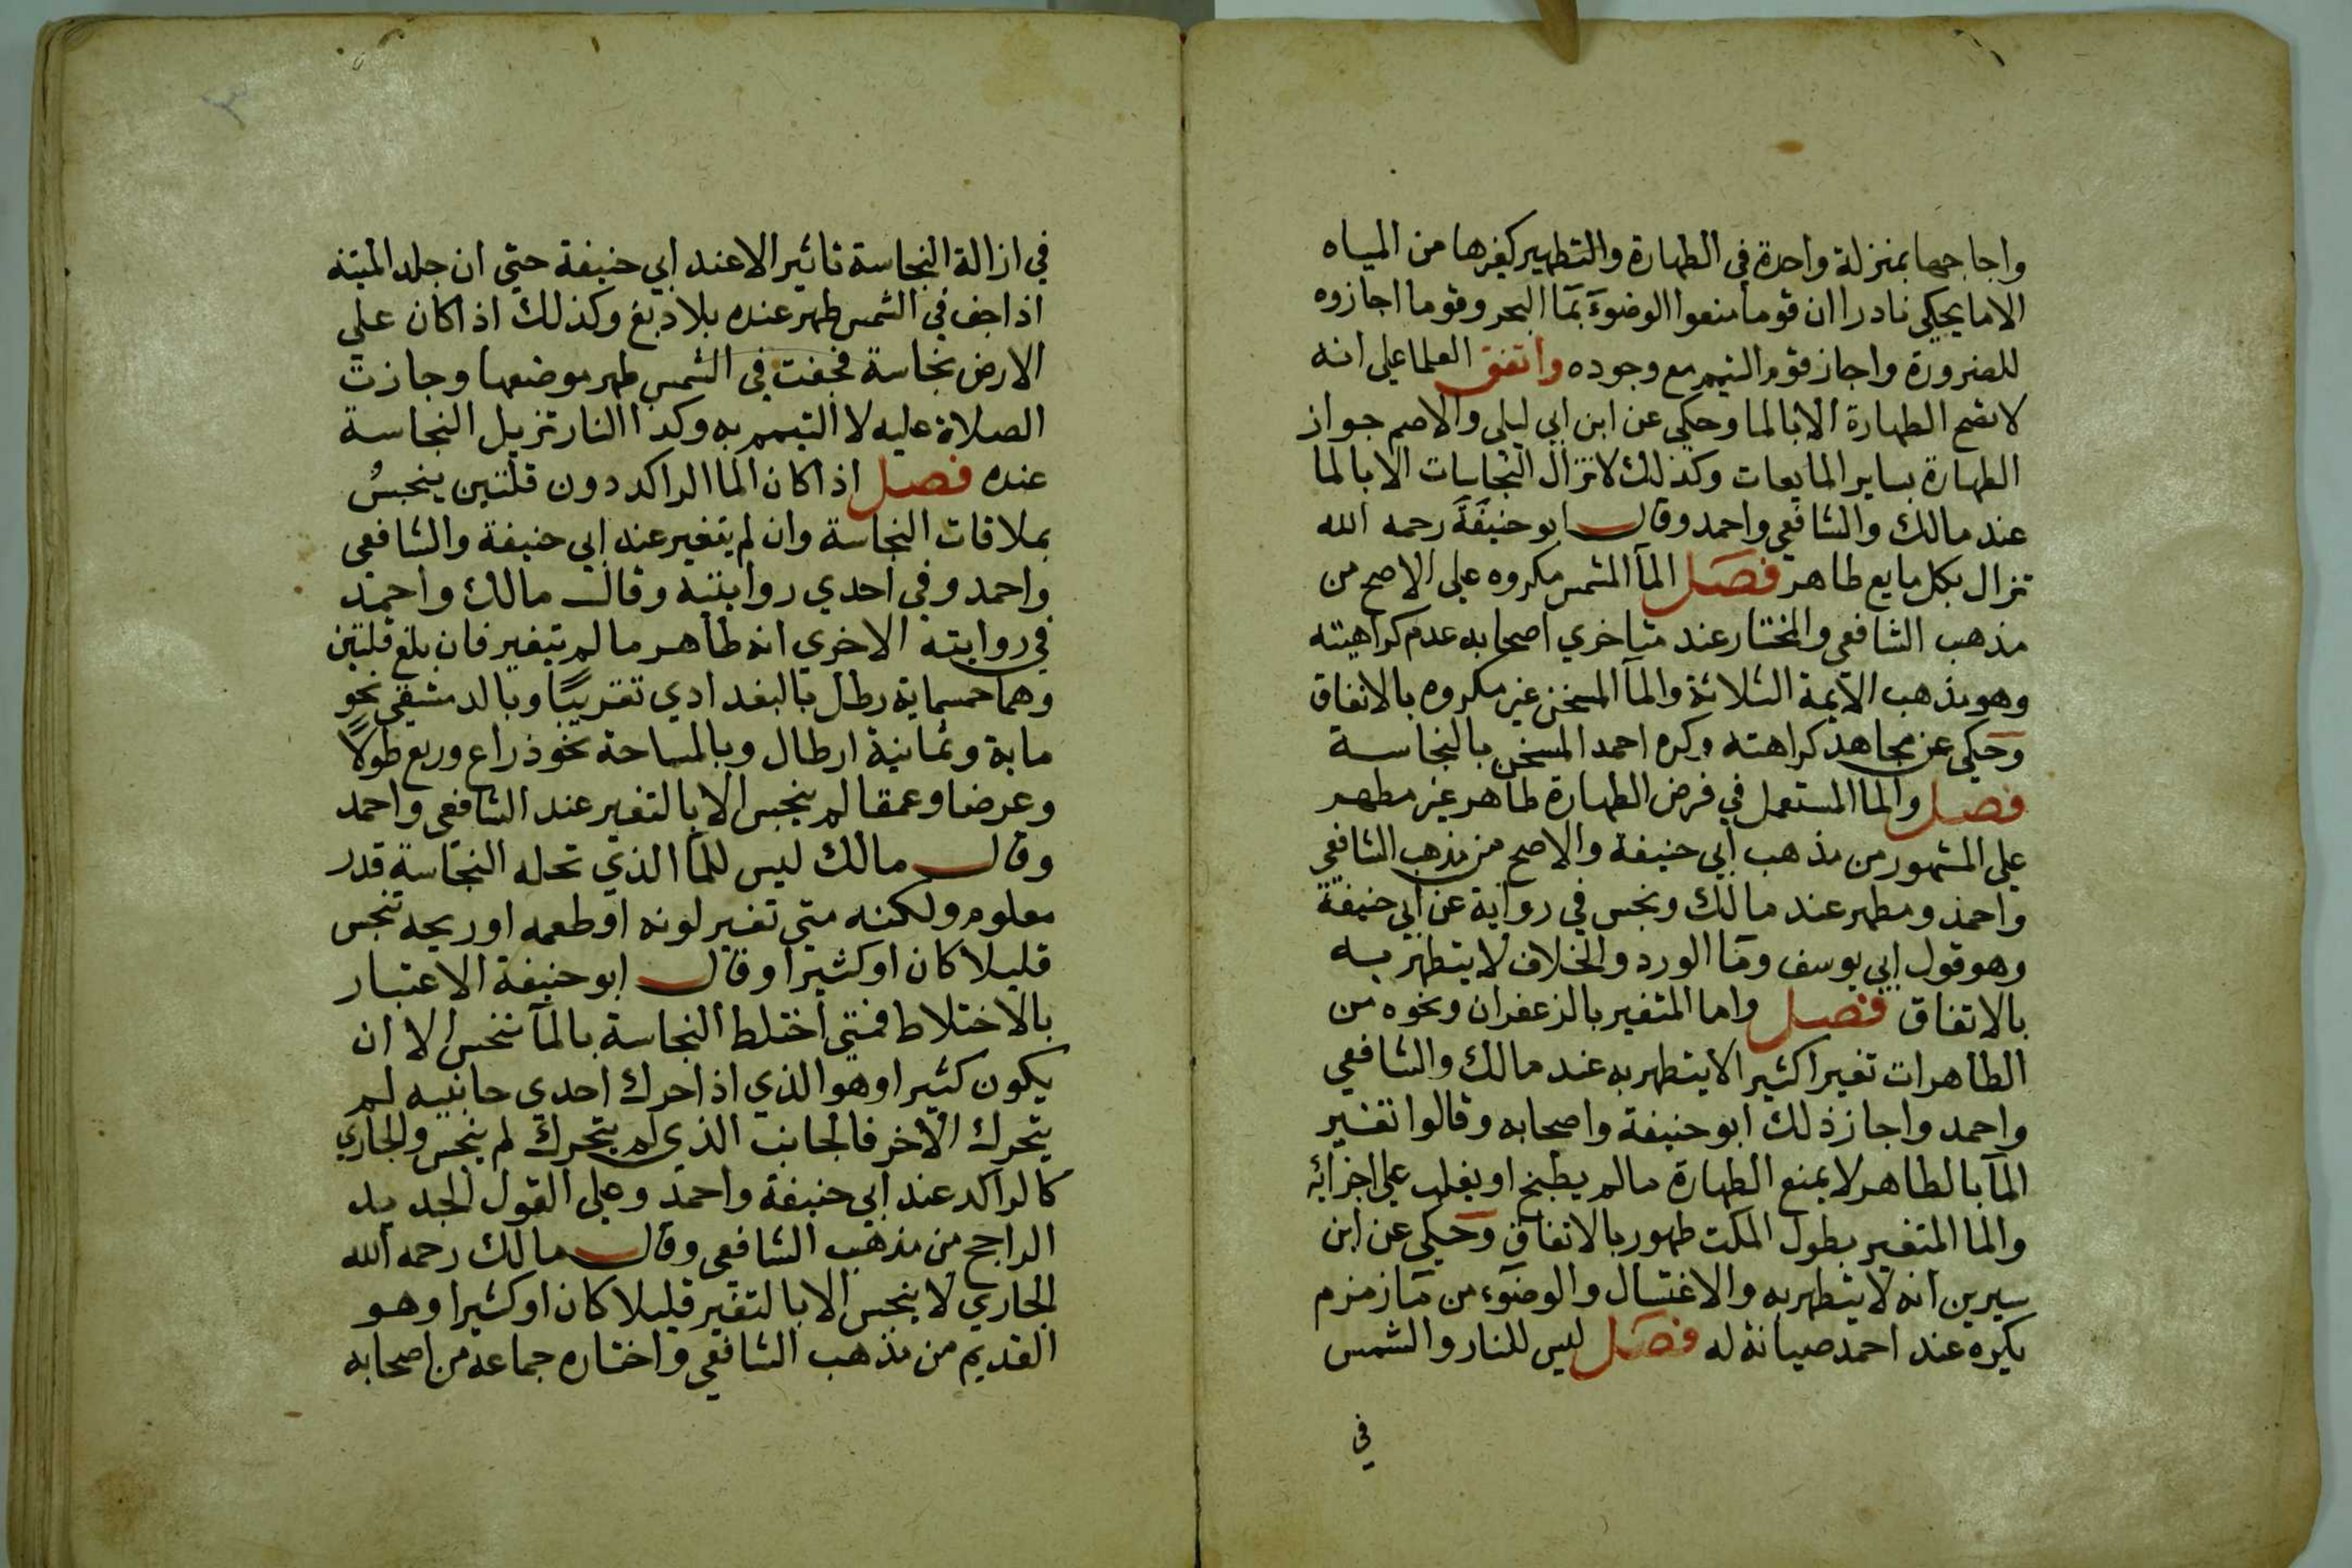 واجاجها بمنزلة واحدة في الطهارة والتطهير كغيرها من المياه
الا ما يحكي نادرا ان قوما منعوا الوضوء بمآ البحر وقوما اجازوه
للضرورة واجاز قوم التيمم مع وجوده واتفق العلما علي انه
لا تصح الطهارة الا بالما وحكي عن ابن ابي ليلى والاصم جواز
الطهارة بساير المايعات وكذلك لا تزال النجاسات الا بالما
عند مالك والشافعي واحمد وقال ابو حنيفة رحمه الله
تزال بكل مايع طاهر فصل المآ المشمس مكروه علي الاصح من
مذهب الشافعي والمختار عند متاخري اصحابه عدم كراهيته
وهو مذهب الايمة الثلاثة والمآ المسخن غير مكروه بالاتفاق
وحكي عن مجاهد كراهته وكره احمد المسخن بالنجاسة
فصل والما المستعمل في فرض الطهارة طاهر غير مطهر
علي المشهور من مذهب ابي حنيفة والاصح من مذهب الشافعي
واحمد ومطهر عند مالك ونجس في رواية عن ابي حنيفة
وهو قول ابي يوسف ومآ الورد والخلاف لا يتطهر به
بالاتفاق فصل واما المتغير بالزعفران ونحوه من
الطاهرات تغيرا كثيرا لا يتطهر به عند مالك والشافعي
واحمد واجاز ذلك ابو حنيفة واصحابه وقالوا تغير
المآ بالطاهر لا يمنع الطهارة ما لم يطبخ او يغلب علي اجزائه
والما المتغير بطول المكث طهور بالاتفاق وحكي عن ابن
سيرين انه لا يتطهر به والاغتسال والوضوء من مآ زمزم
يكره عند احمد صيانة له فصل ليس للنار والشمس
في
في ازالة النجاسة تاثير الا عند ابي حنيفة حتي ان جلد الميتة
اذا جف في الشمس طهر عنده بلا دبغ وكذلك اذا كان علي
الارض نجاسة فجفت في الشمس طهر موضعها وجازت
الصلاة عليه لا التيمم به وكذا النار تزيل النجاسة
عنده فصل اذا كان الما الراكد دون قلتين ينجس
بملاقات النجاسة وان لم يتغير عند ابي حنيفة والشافعي
واحمد وفي احدي روايتيه وقال مالك واحمد
في روايته الاخري انه طاهر ما لم يتغير فان بلغ قلتين
وهما خمسماية رطل بالبغدادي تقريبًا وبالدمشقي نحو
ماية وثمانية ارطال وبالمساحة نحو ذراع وربع طولًا
وعرضا وعمقا لم ينجس الا بالتغير عند الشافعي واحمد
وقال مالك ليس للمآ الذي تحله النجاسة قدر
معلوم ولكنه متي تغير لونه او طعمه او ريحه تنجس
قليلا كان او كثيرا وقال ابو حنيفة الاعتبار
بالاختلاط فمتي اختلط النجاسة بالمآ تنجس الا ان
يكون كثيرا وهو الذي اذا حرك احدي جانبيه لم
يتحرك الاخر فالجانب الذي لم يتحرك لم ينجس والجاري
كالراكد عند ابي حنيفة واحمد وعلي القول الجديد
الراجح من مذهب الشافعي وقال مالك رحمه الله
الجاري لا ينجس الا بالتغير قليلا كان او كثيرا وهو
القديم من مذهب الشافعي واختاره جماعه من اصحابه